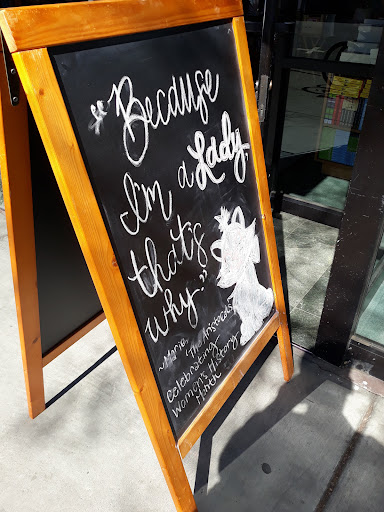 "Because
I'm a Lady,
that's
why."
~Marie,
The Aristocats
Celebrating
Women's History
Month